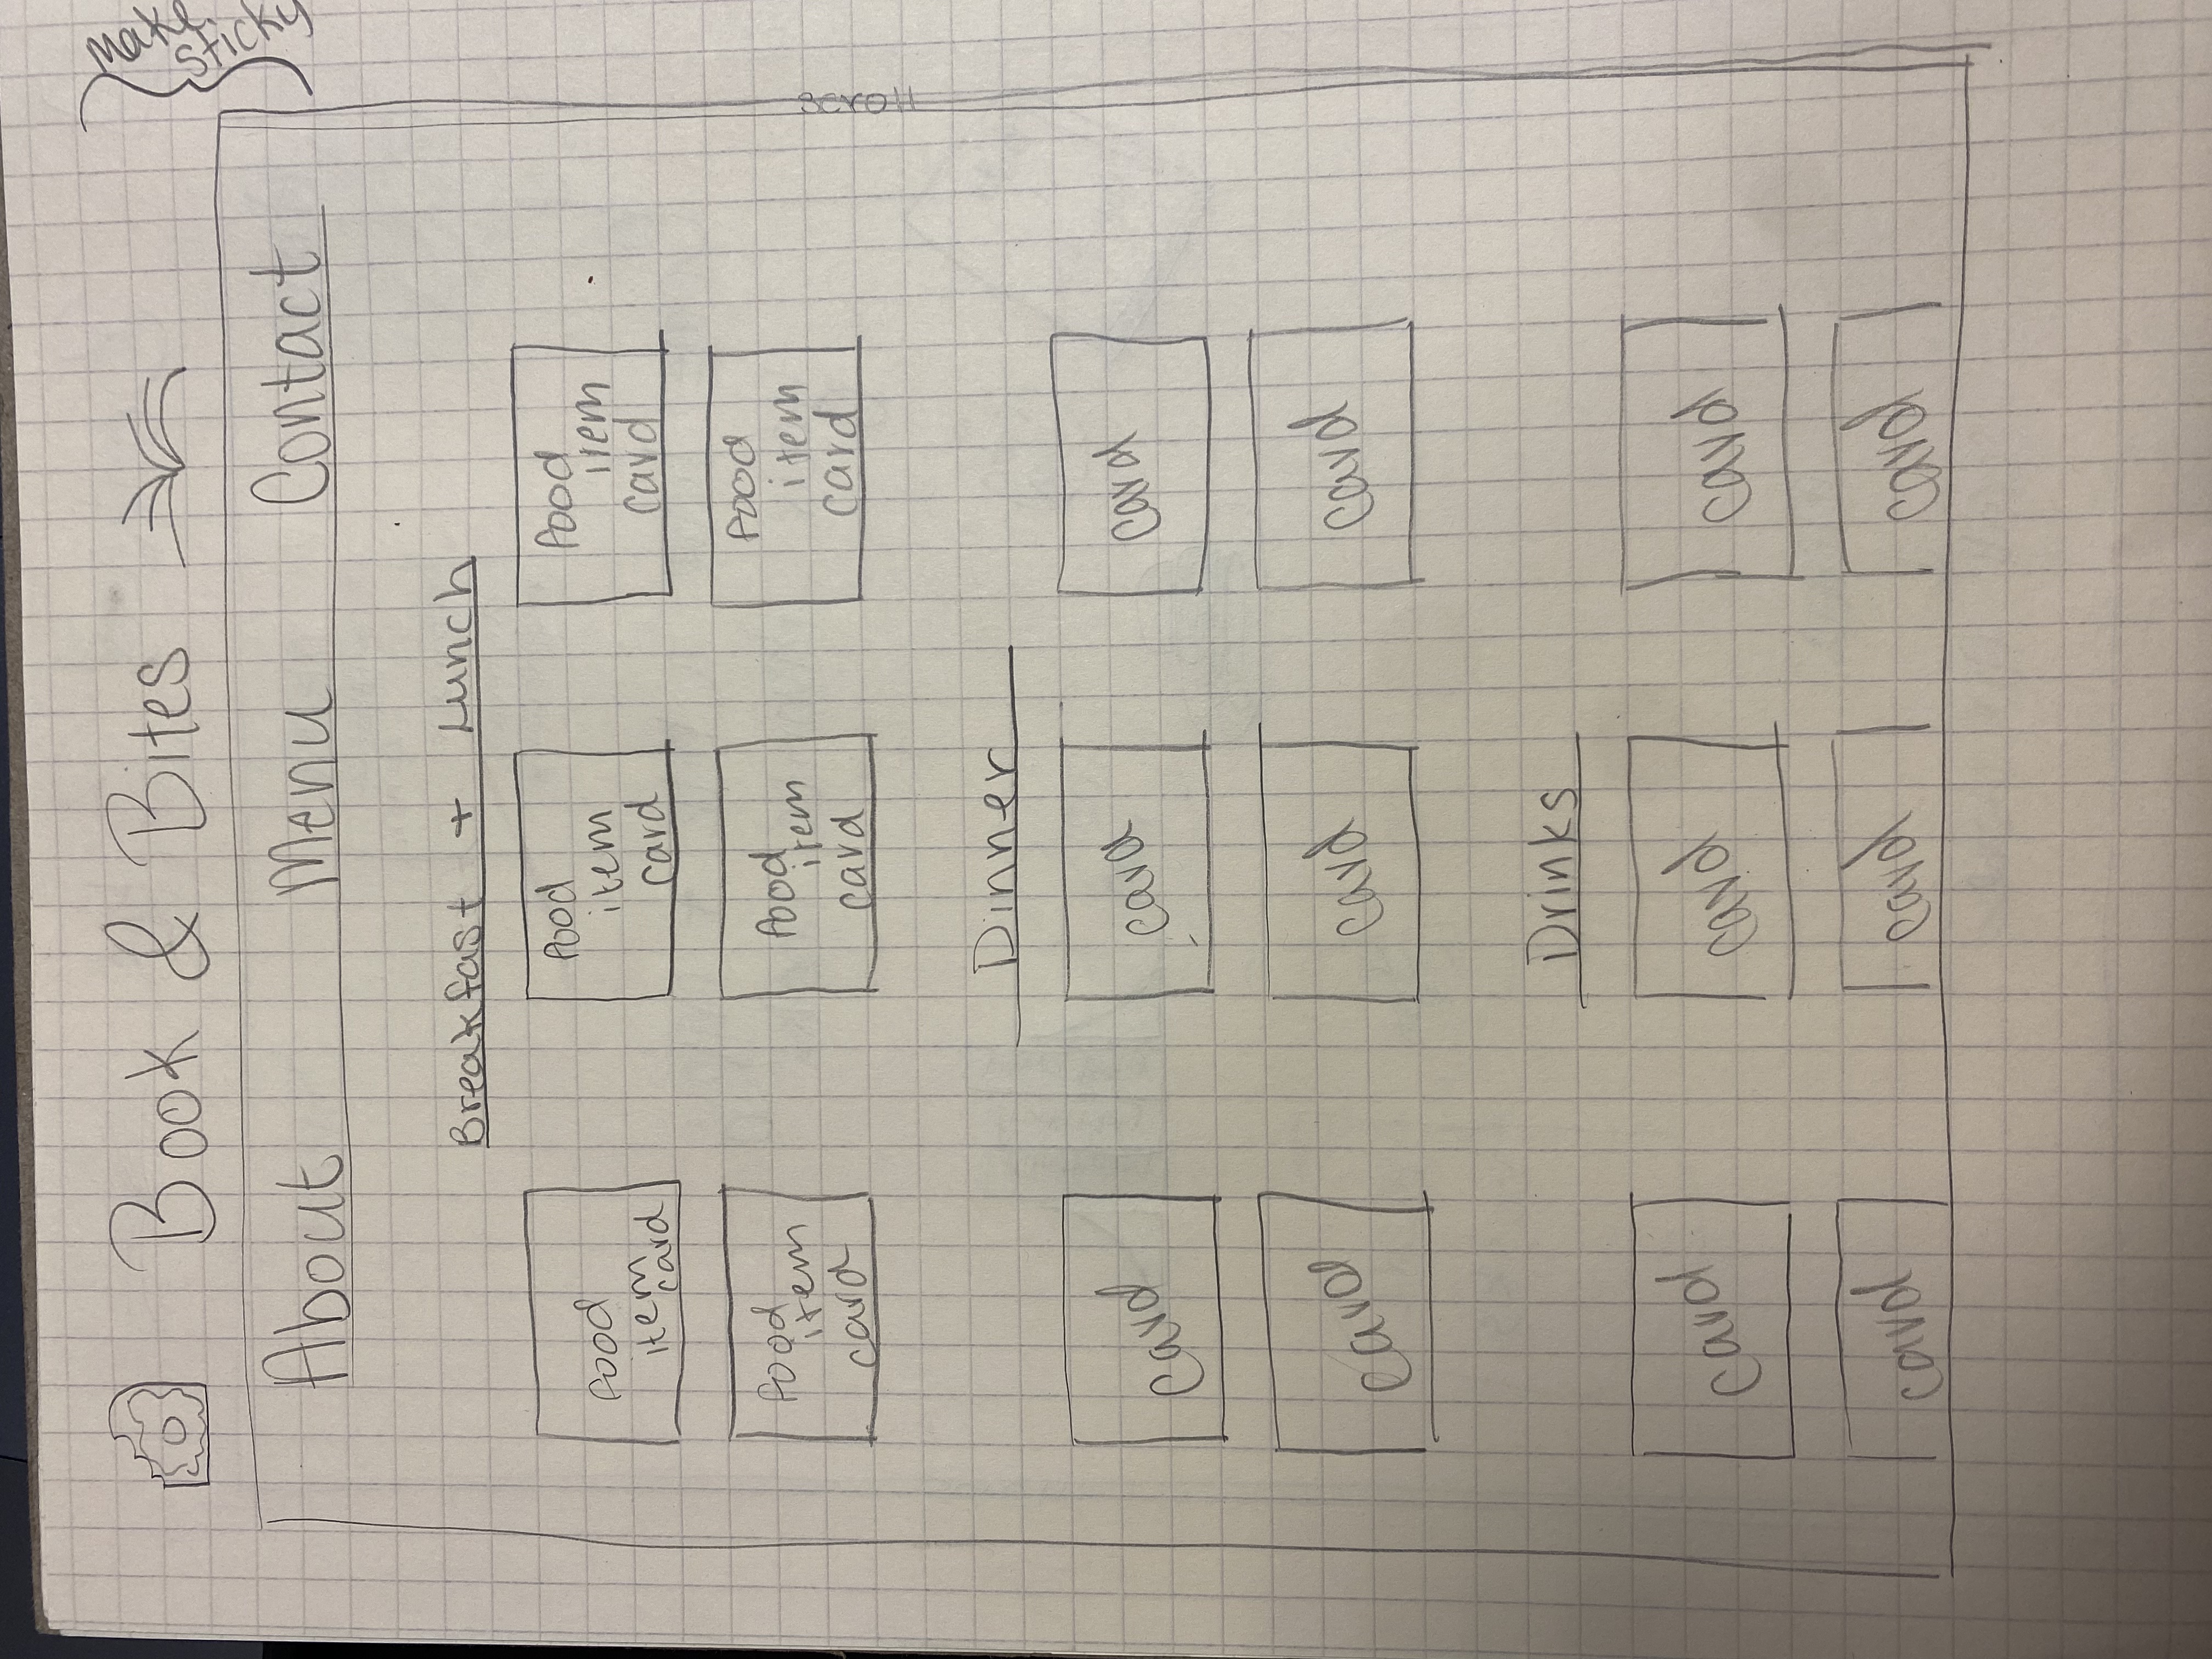 Make
sticky
Book & Bites
About Menu Contact
scroll
Breakfast + Lunch
food
item
card
food
item
card
food
item
card
food
item
card
food
item
card
food
item
card
Dinner
card
card
card
card
card
card
Drinks
card
card
card
card
card
card